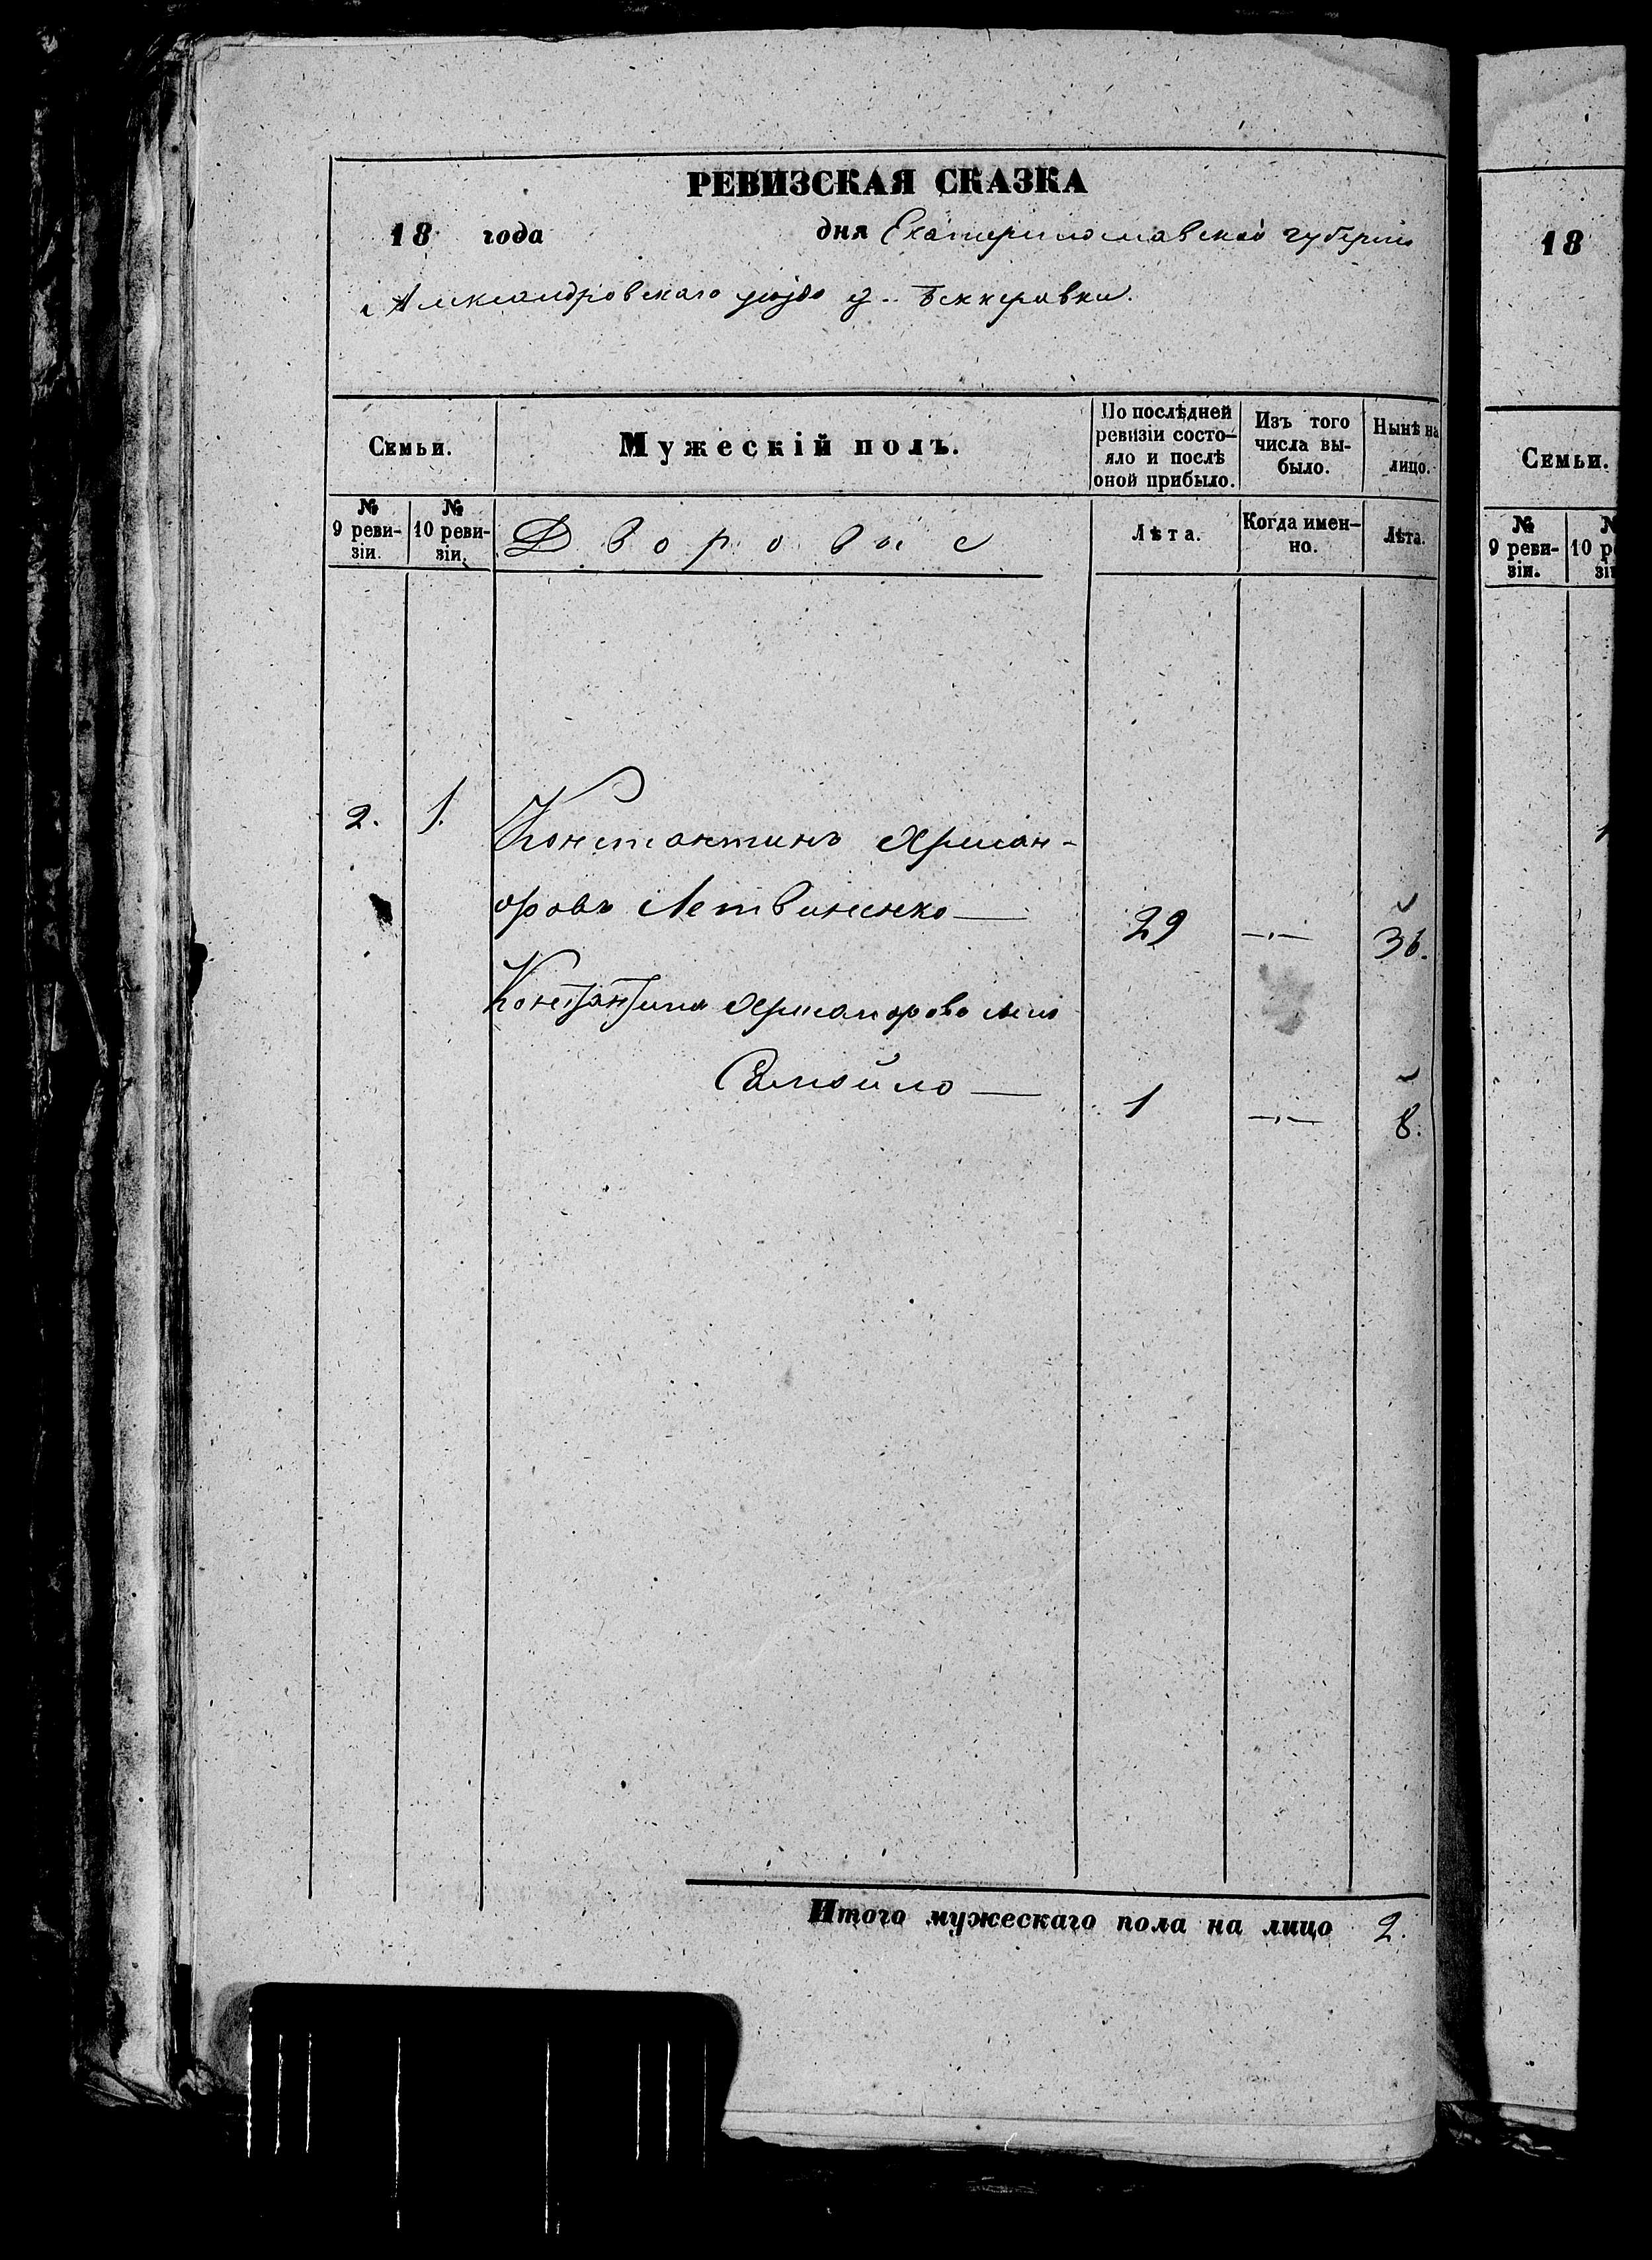 РЕВИЗСКАЯ СКАЗКА
18 года дня Екатеринославской губерніи
Александровскаго уѣзда Беккеровки.
Семьи.
Мужескій полъ.
По послѣдней ревизіи состо-
яло и послѣ
оной прибыло.
Изъ того
числа вы-
было.
Нынѣ на
лицо.
№
9 реви-
зіи.
№
10 реви-
зіи.
Дворовые
Лѣта.
Когда имен-
но.
Лѣта.
2. 1. Константинъ
Летвиненко — 29 —„— 36.
Константина
Самойло — 1 —„— 8.
Итого мужескаго пола на лицо 2.
18
Семьи.
№
9 реви-
зіи.